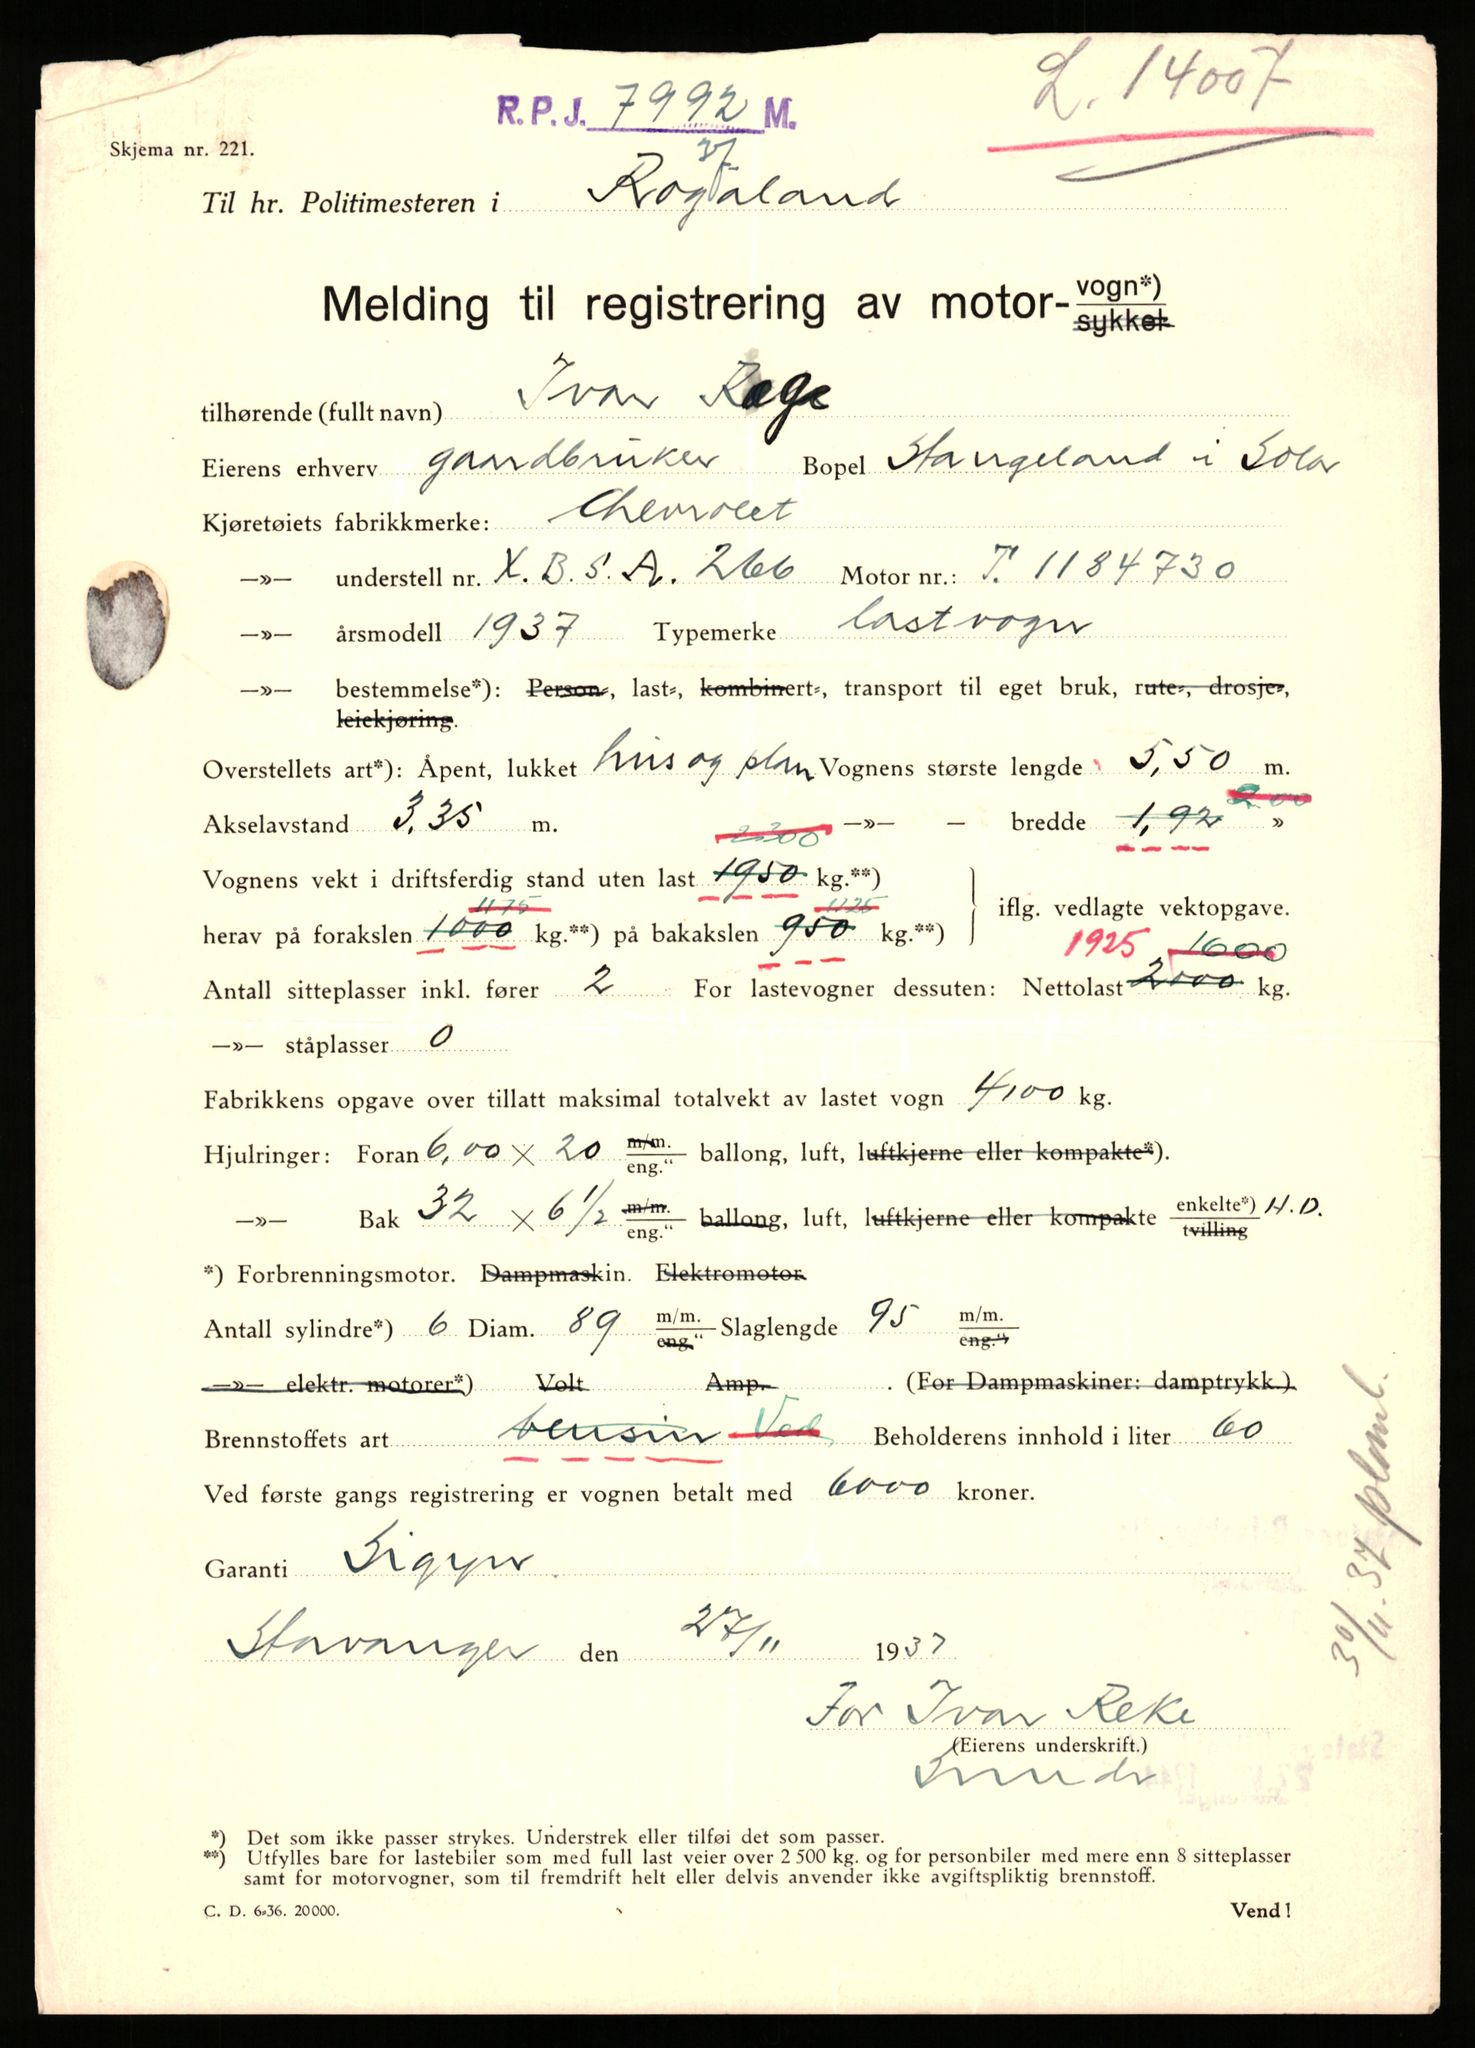 L. 14007
R.P.J. 7992 M.
37
Skjema nr. 221.
Til hr. Politimesteren i Rogaland
Melding til registrering av motor- vogn*)
sykkel
tilhørende (fullt navn) Ivar Rege
Eierens erhverv gaardbruker Bopel Stangeland i Sola
Kjøretøiets fabrikkmerke: Chevrolet
—»— understell nr. X.B.S.A. 266 Motor nr.: T. 1184730
—»— årsmodell 1937 Typemerke lastvogn
—»— bestemmelse*): Person-, last-, kombinert-, transport til eget bruk, rute-, drosje-,
leiekjøring.
Overstellets art*): Åpent, lukket hus og plan Vognens største lengde 5,50 m.
2.00
Akselavstand 3,35 m. —»— — bredde 1,92 »
2300
Vognens vekt i driftsferdig stand uten last 1950 kg.**)
1175 1125
herav på forakslen 1000 kg.**) på bakakslen 950 kg.**) iflg. vedlagte vektopgave.
1925 1600
Antall sitteplasser inkl. fører 2 For lastevogner dessuten: Nettolast 2000 kg.
—»— ståplasser 0
Fabrikkens opgave over tillatt maksimal totalvekt av lastet vogn 4100 kg.
Hjulringer: Foran 6,00 × 20 m/m. eng." ballong, luft, luftkjerne eller kompakte*).
—»— Bak 32 × 6 1/2 m/m. eng." ballong, luft, luftkjerne eller kompakte enkelte*) tvilling H.D.
*) Forbrenningsmotor. Dampmaskin. Elektromotor.
Antall sylindre*) 6 Diam. 89 m/m. eng." Slaglengde 95 m/m. eng."
—»— elektr. motorer*) Volt Amp. . (For Dampmaskiner: damptrykk.)
Brennstoffets art bensin Ved Beholderens innhold i liter 60
Ved første gangs registrering er vognen betalt med 6000 kroner.
Garanti Sigyn
Stavanger den 27/11 1937
For Ivar Reke
(Eierens underskrift.)
30/11.37 plomb.
*) Det som ikke passer strykes. Understrek eller tilføi det som passer.
**) Utfylles bare for lastebiler som med full last veier over 2 500 kg. og for personbiler med mere enn 8 sitteplasser
samt for motorvogner, som til fremdrift helt eller delvis anvender ikke avgiftspliktig brennstoff.
C. D. 6-36. 20000.
Vend!